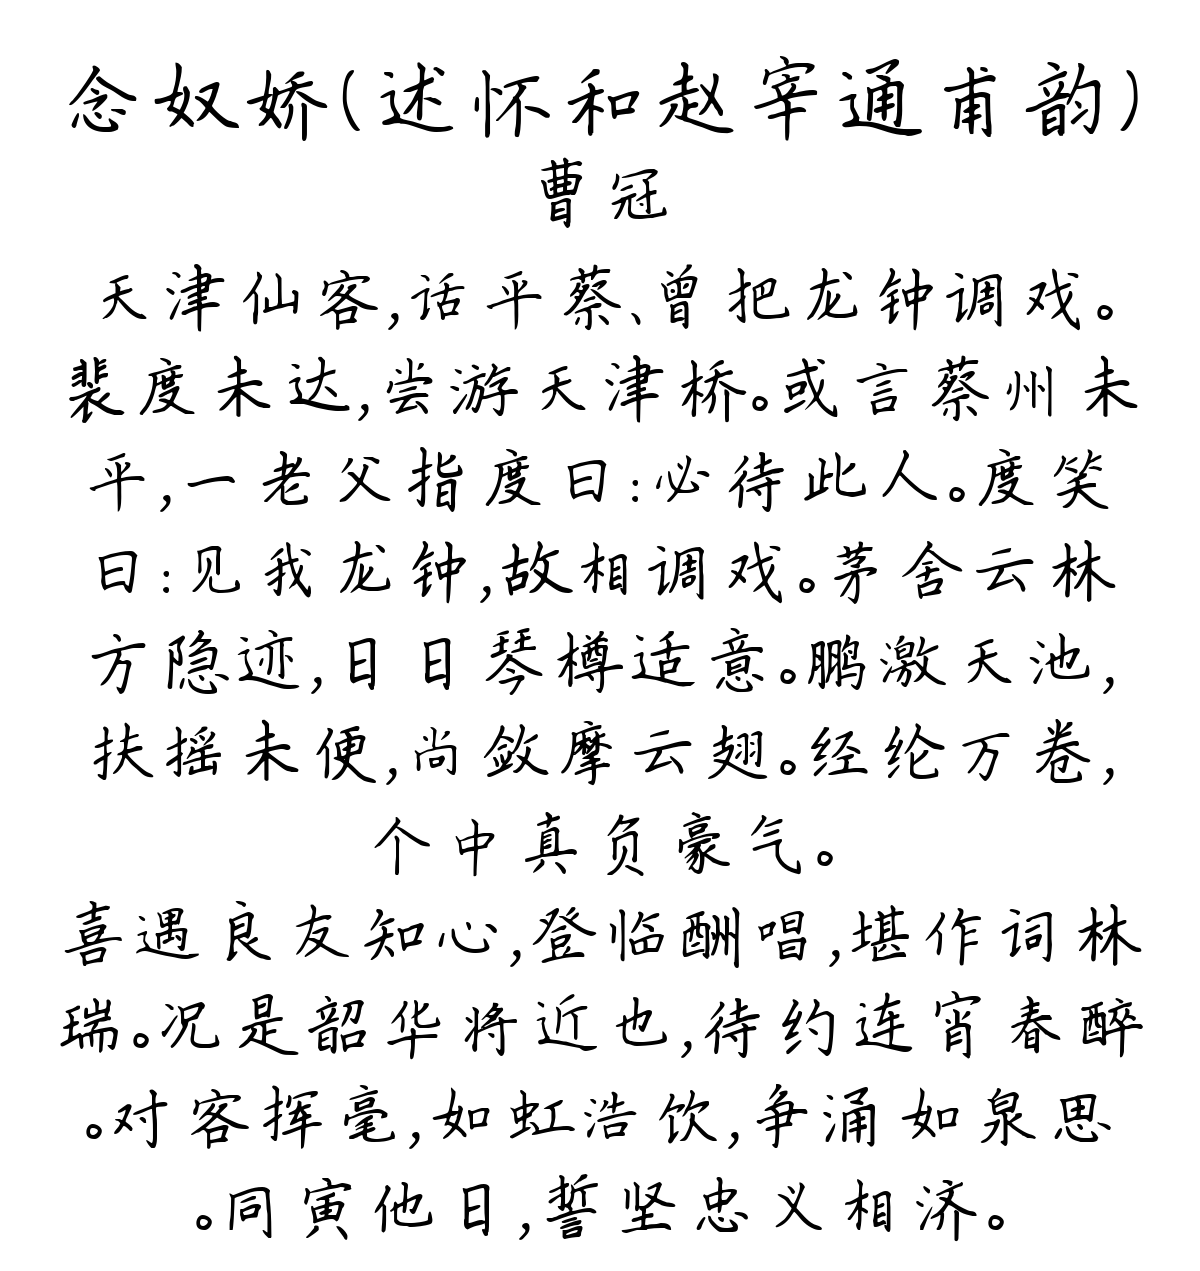 念奴娇(述怀和赵宰通甫韵)
曹冠
天津仙客,话平蔡、曾把龙钟调戏。
裴度未达,尝游天津桥。或言蔡州未
平,一老父指度曰:必待此人。度笑
曰:见我龙钟,故相调戏。茅舍云林
方隐迹,日日琴樽适意。鹏激天池,
扶摇未便,尚敛摩云翅。经纶万卷,
个中真负豪气。
喜遇良友知心,登临酬唱,堪作词林
瑞。况是韶华将近也,待约连宵春醉
。对客挥毫,如虹浩饮,争涌如泉思
。同寅他日,誓坚忠义相济。